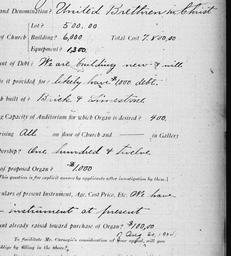 and Denomination? United Brethren in Christ
Lot? 500.00
of Church Building? 6,000 Total Cost 7,800.00
Equipment? 1300.
nt of Debt? We are building new & will
is it provided for? likely have $1000 debt.
ch built of? Brick & Limestone
g Capacity of Auditorium for which Organ is desired? 400.
rising All on floor of Church and — in Gallery
bership? One hundred & twelve
of proposed Organ? $1000
This question is for explicit answer by applicants after investigation by them.)
culars of present Instrument, Age, Cost Price, Etc. We have
instrument at present
nt already raised toward purchase of Organ? $100.00
Aug. 20, 190
To facilitate Mr. Carnegie's consideration of your appeal, will you
oblige by filling in the above?